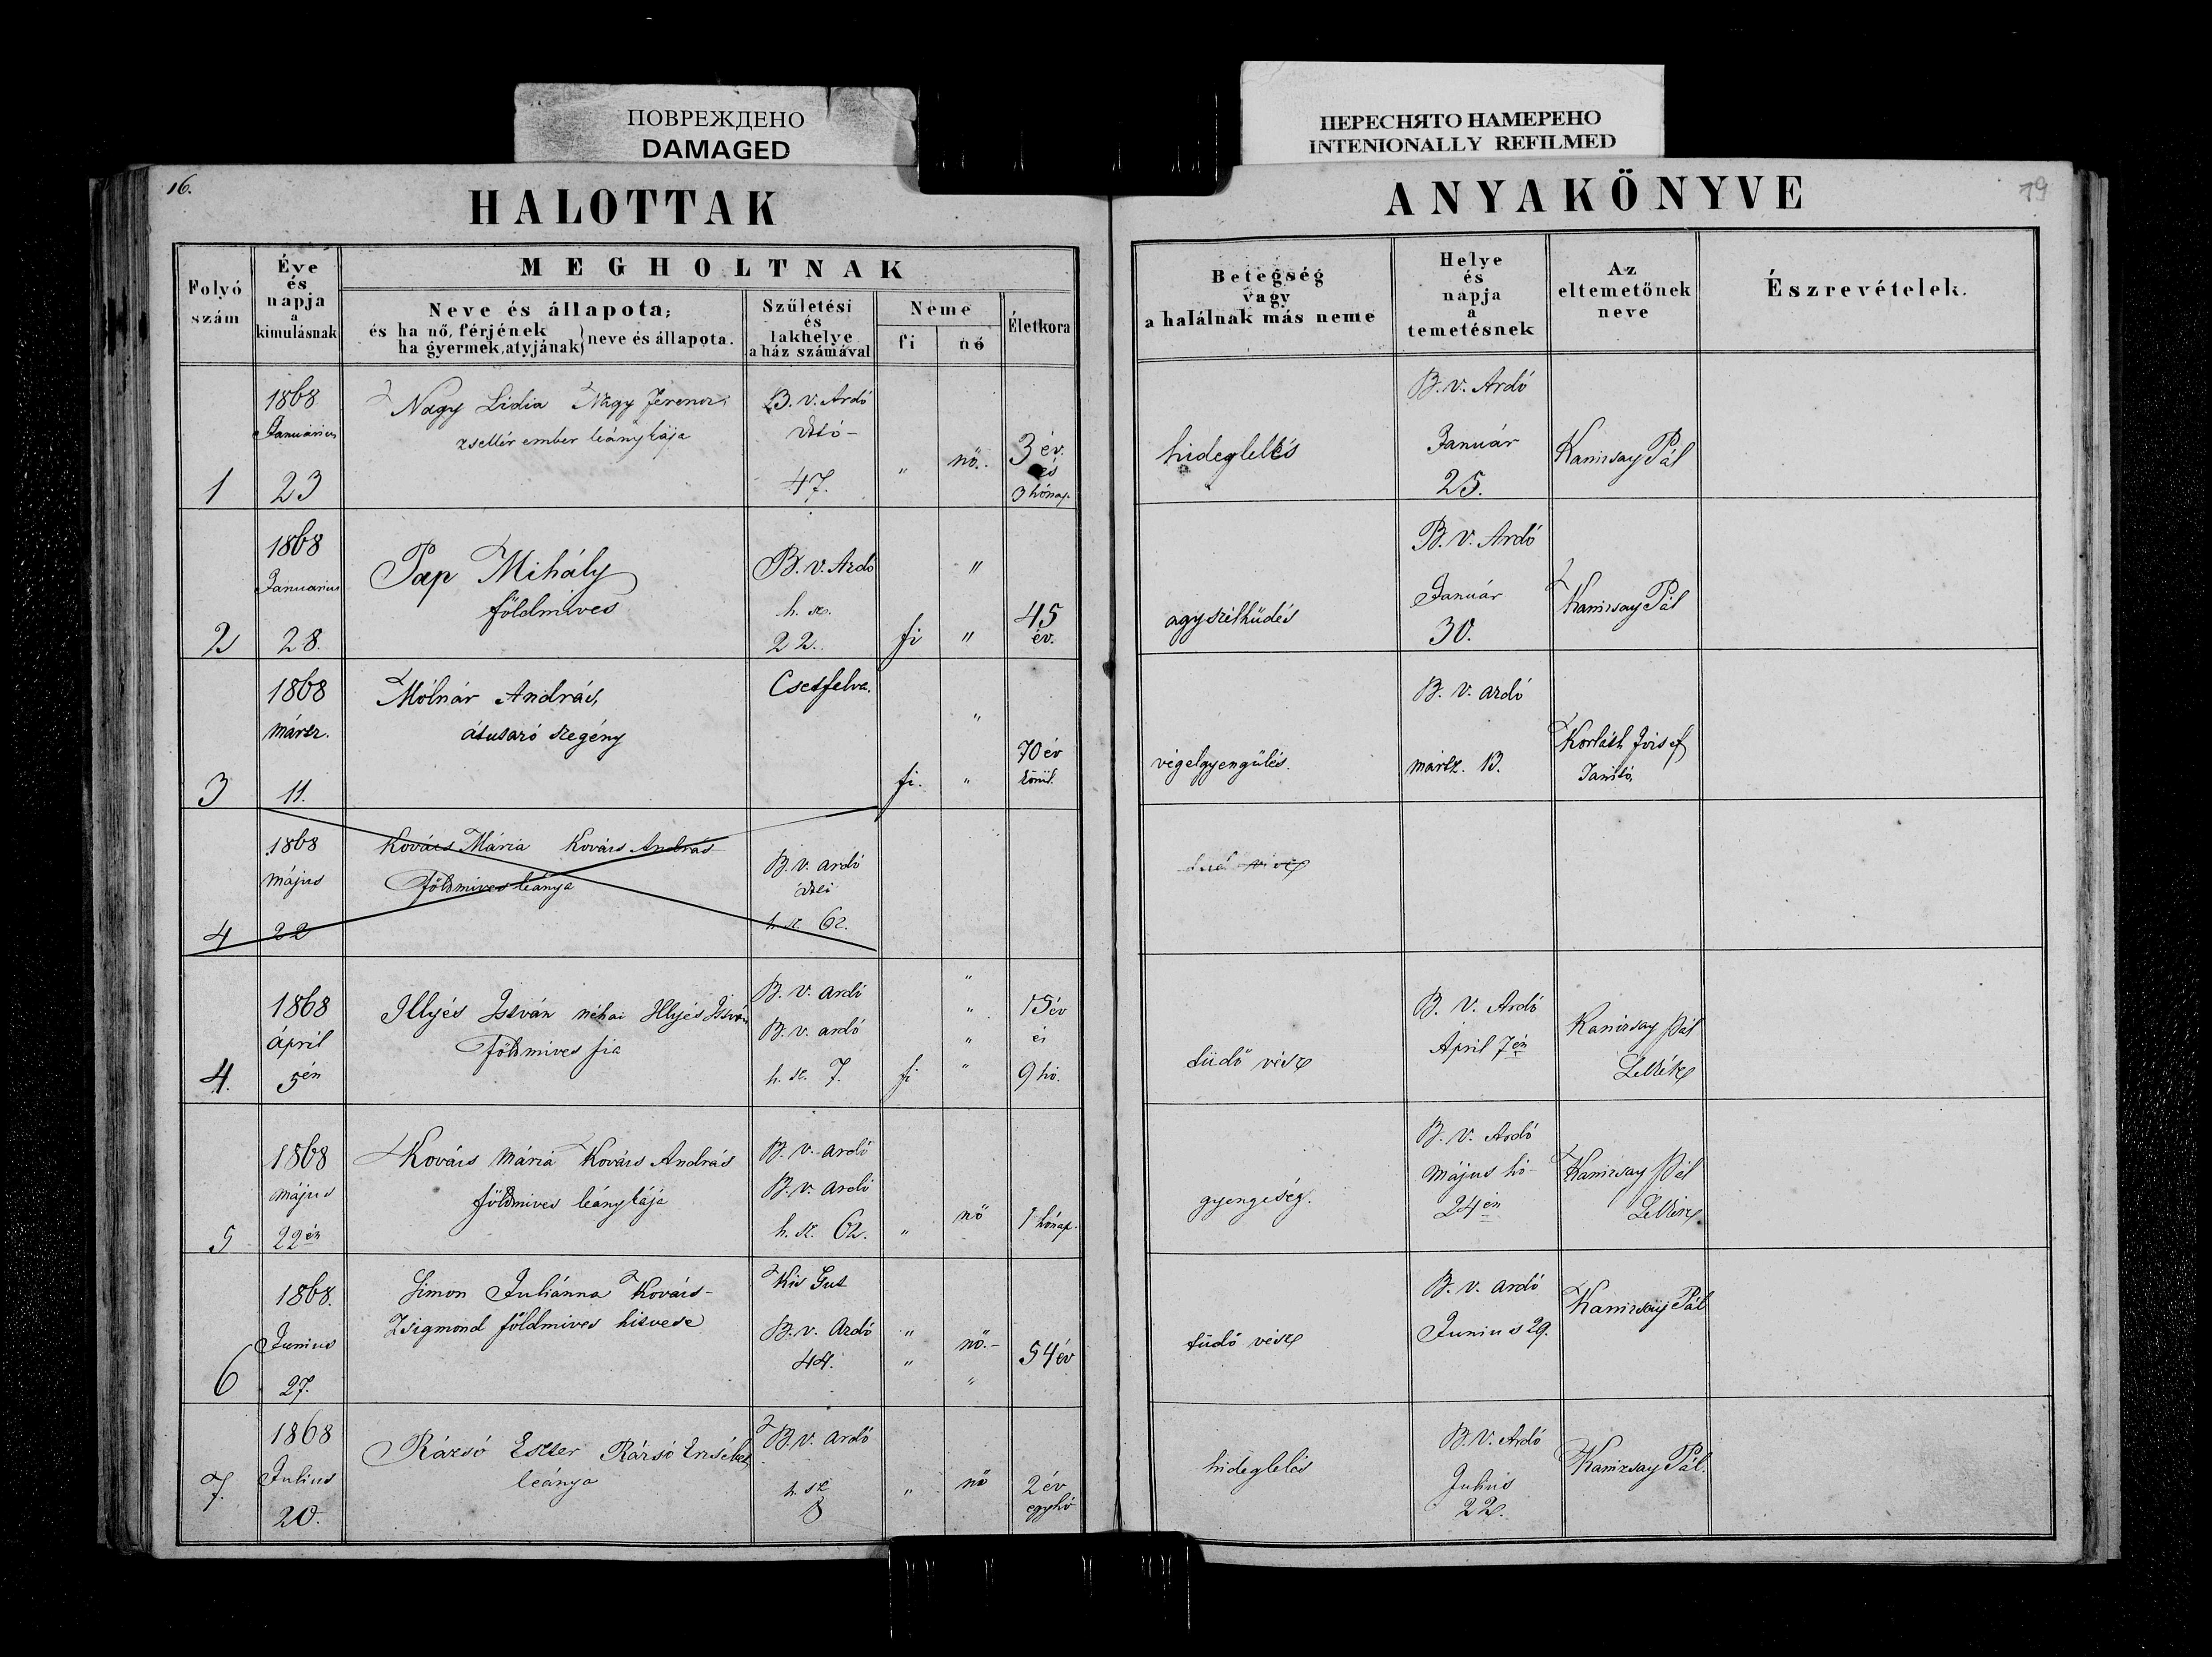 ПОВРЕЖДЕНО
DAMAGED
ПЕРЕСНЯТО НАМЕРЕНО
INTENIONALLY REFILMED
16.
HALOTTAK
ANYAKÖNYVE
19
Folyó
szám
Éve
és
napja
a
kimulásnak
MEGHOLTNAK
Neve és állapota;
és ha nő, férjének
ha gyermek, atyjának} neve és állapota.
Születési
és
lakhelye
a ház számával
Neme
fi
nő
Életkora
Betegség
vagy
a halálnak más neme
Helye
és
napja
a
temetésnek
Az
eltemetőnek
neve
Észrevételek.
1
1868
Januárius
23
Nagy Lidia Nagy Ferencz
zsellér ember leánykája
B. v. Ardó
47.
"
nő.
3 év.
és
3 hónap.
hideglelés
B. v. Ardó
Január
25.
Kanizsay Pál
2
1868
Januarius
28.
Pap Mihály
földmives
B. v. Ardó
h. sz.
22.
fi
"
"
45
év.
agyszélhüdés
B. v. Ardó
Január
30.
Kanizsay Pál
3
1868
mártz.
11.
Mólnár András,
átutazó szegény
Csetfelva.
fi.
"
"
70 év
körül.
végelgyengülés.
B. v. ardó
mártz. 13.
Korláth József
Tanitó,
4
1868
május
22
Kovács Mária Kovács András
Földmives leánya
B. v. ardó
h. sz. 62.
4.
1868
ápril
5én
Illyés István néhai Illyés István
Földmives fia
B. v. ardó
B. v. ardó
h. sz. 7.
fi
"
"
"
"
15 év
és
9 hó.
tüdő vész
B. V. Ardó
April 7én
Kanizsay Pál
Lelkész
5
1868
május
22én
Kovács Mária Kovács András
földmives leánykája
B. v. ardó
B. v. ardó
h. sz. 62.
"
nő
1 hónap.
gyengeség.
B. V. Ardó
Május hó
24én
Kanizsay Pál
Lelkész
6
1868.
Junius
27.
Simon Juliánna Kovács-
Zsigmond földmives hitvese
Kis Gut
B. v. Ardó
44.
"
"
nő.-
"
54 év
tüdő vész
B. v. ardó
Junius 29.
Kanizsay Pál
7.
1868
Julius
20.
Rázsó Eszter Rázsó Erzsébet
leánya
B. v. ardó
h. sz
8
"
nő
2 év
egy hó
hideglelés
B. V. Ardó
Julius
22.
Kanizsay Pál.